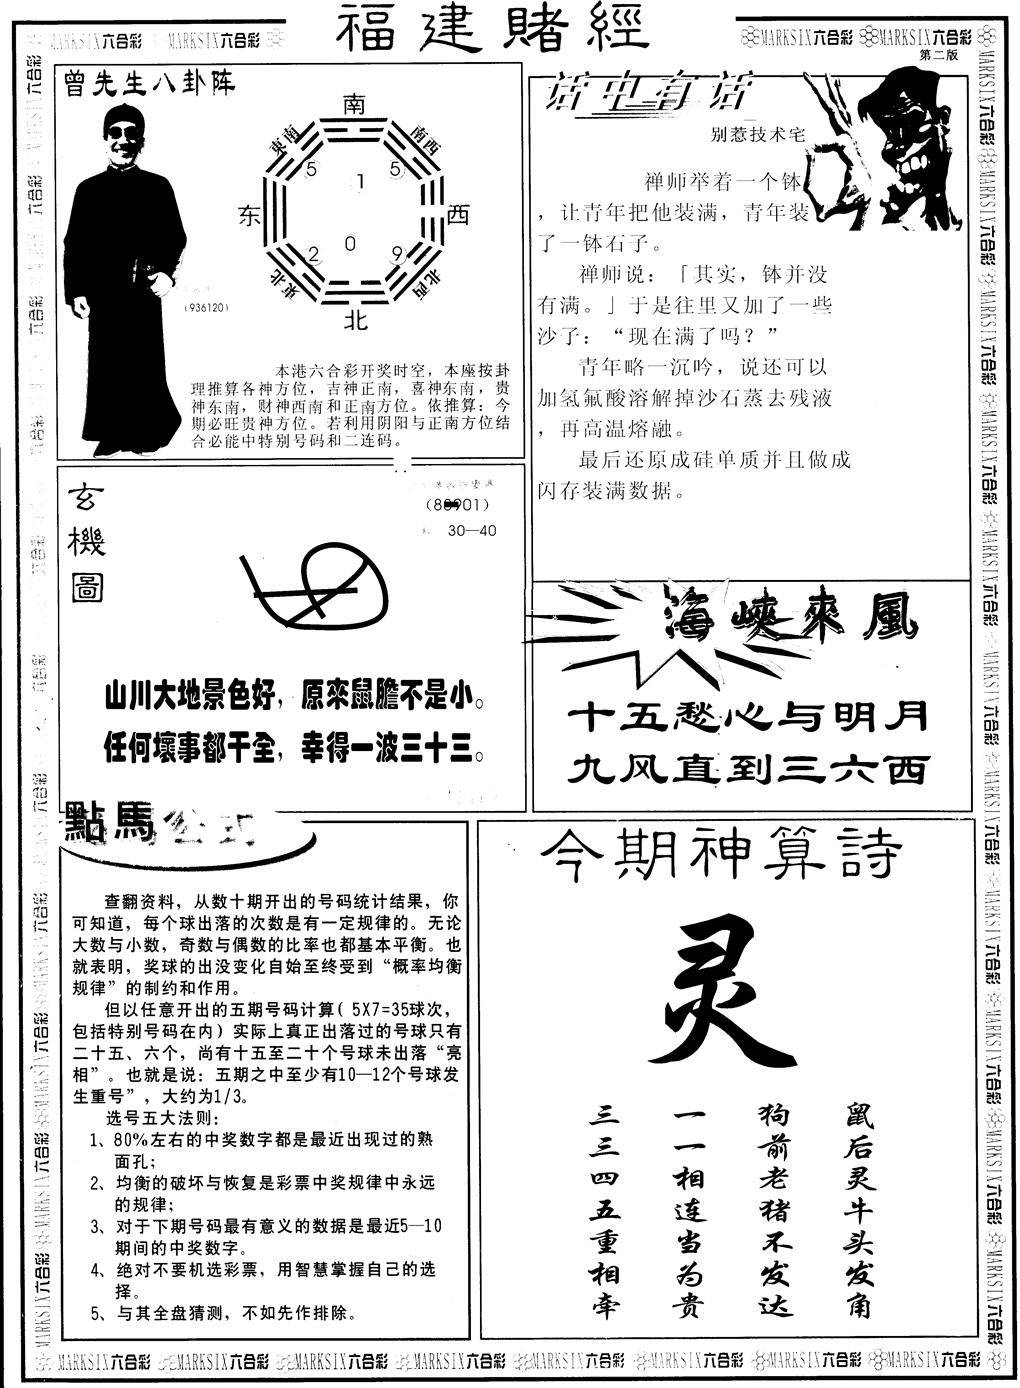 福建賭經
第二版
MARKSIX六合彩 MARKSIX六合彩 MARKSIX六合彩 MARKSIX六合彩
曾先生八卦阵
南
東南 南西
5 1 5
东 西
2 0 9
東北 北西
北
(936120)
本港六合彩开奖时空，本座按卦
理推算各神方位，吉神正南，喜神东南，贵
神东南，财神西南和正南方位。依推算：今
期必旺贵神方位。若利用阴阳与正南方位结
合必能中特别号码和二连码。
话中有话
别惹技术宅
禅师举着一个钵
，让青年把他装满，青年装
了一钵石子。
禅师说：「其实，钵并没
有满。」于是往里又加了一些
沙子：“现在满了吗？”
青年略一沉吟，说还可以
加氢氟酸溶解掉沙石蒸去残液
，再高温熔融。
最后还原成硅单质并且做成
闪存装满数据。
玄機圖
30—40
山川大地景色好，原來鼠膽不是小。
任何壞事都干全，幸得一波三十三。
海峽來風
十五愁心与明月
九风直到三六西
點馬公式
查翻资料，从数十期开出的号码统计结果，你
可知道，每个球出落的次数是有一定规律的。无论
大数与小数，奇数与偶数的比率也都基本平衡。也
就表明，奖球的出没变化自始至终受到“概率均衡
规律”的制约和作用。
但以任意开出的五期号码计算( 5X7=35球次，
包括特别号码在内) 实际上真正出落过的号球只有
二十五、六个，尚有十五至二十个号球未出落“亮
相”。也就是说：五期之中至少有10—12个号球发
生重号”，大约为1/3。
选号五大法则：
1、80%左右的中奖数字都是最近出现过的熟
面孔；
2、均衡的破坏与恢复是彩票中奖规律中永远
的规律；
3、对于下期号码最有意义的数据是最近5—10
期间的中奖数字。
4、绝对不要机选彩票，用智慧掌握自己的选
择。
5、与其全盘猜测，不如先作排除。
今期神算詩
灵
鼠后灵牛头发角
狗前老猪不发达
一一相连当为贵
三三四五重相牵
MARKSIX六合彩 MARKSIX六合彩 MARKSIX六合彩 MARKSIX六合彩 MARKSIX六合彩 MARKSIX六合彩 MARKSIX六合彩 MARKSIX六合彩